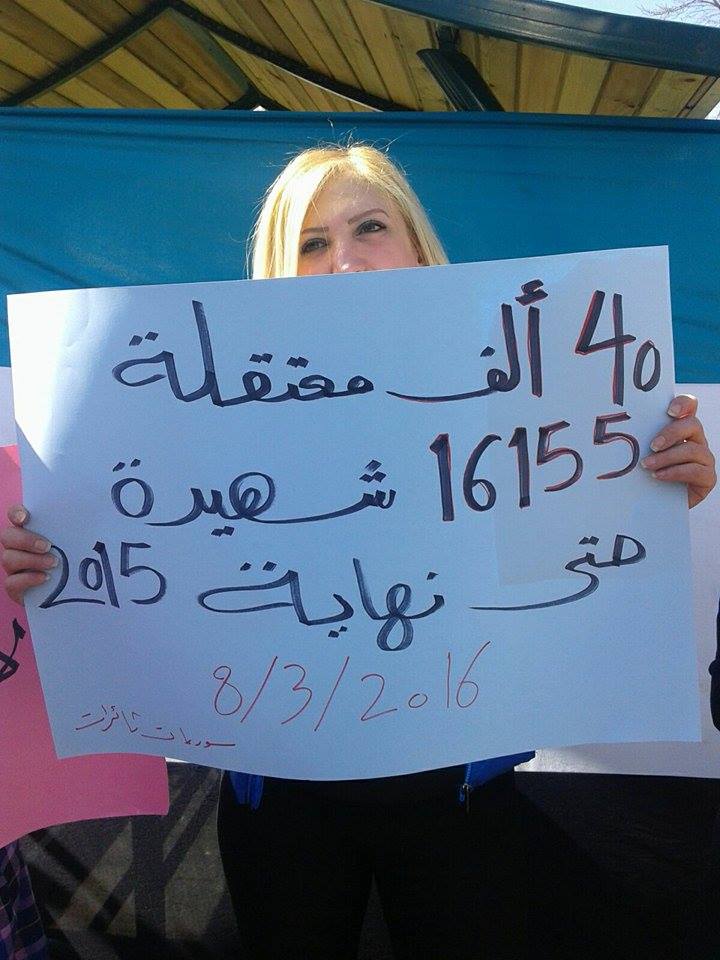 40 ألف معتقلة
16155 شهيدة
حتى نهاية 2015
8/3/2016
سوريات ثائرات